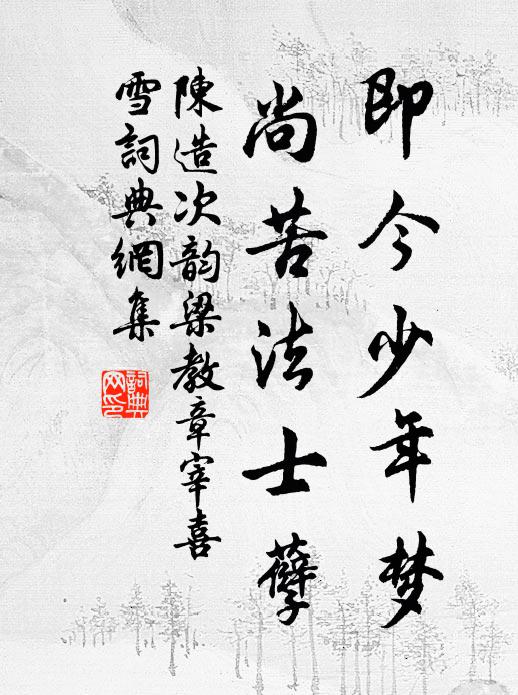 即今少年梦
尚苦法士孽
陳造次韵梁教章宰喜
雪詞典網集
詞典网印